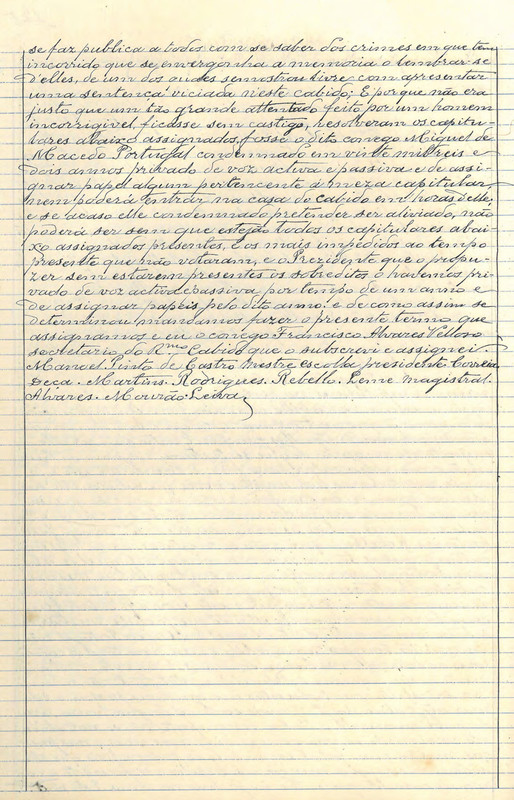 se faz publica a todos com se saber dos crimes em que tem
incorrido que se envergonha a memoria o lembrar-se
d'elles, de um dos quaes se mostrou livre com apresentar
uma sentença viciada n'este cabido; E porque não era
justo que um tão grande attentado feito por um homem
incorrigivel, ficasse sem castigo, resolveram os capitu-
lares abaixo assignados, fosse o dito conego Miguel de
Macedo Portugal condemnado em vinte mil reis e
dois annos privado de voz activa e passiva e de assi-
gnar papel algum pertencente á meza capitular
nem poderá entrar na casa do cabido em horas d'elle;
e se acaso elle condemnado pretender ser aliviado, não
poderá ser sem que estejão todos os capitulares abai-
xo assignados presentes, e os mais impedidos ao tempo
presente que não votaram, e o Prezidente que o propu-
zer sem estarem presentes os sobreditos o havemos pri-
vado de voz activa e passiva por tempo de um anno e
de assignar papeis pelo dito anno: e de como assim se
determinou mandamos fazer o presente termo que
assignamos e eu o conego Francisco Alvares Velloso
secretario do R.mo Cabido que o subscrevi e assignei.
Manoel Pinto de Castro Mestre escola presidente. Correia
Deca. Martins. Rodrigues. Rebello. Leme Magistral.
Alvares. Mourão. Leiva